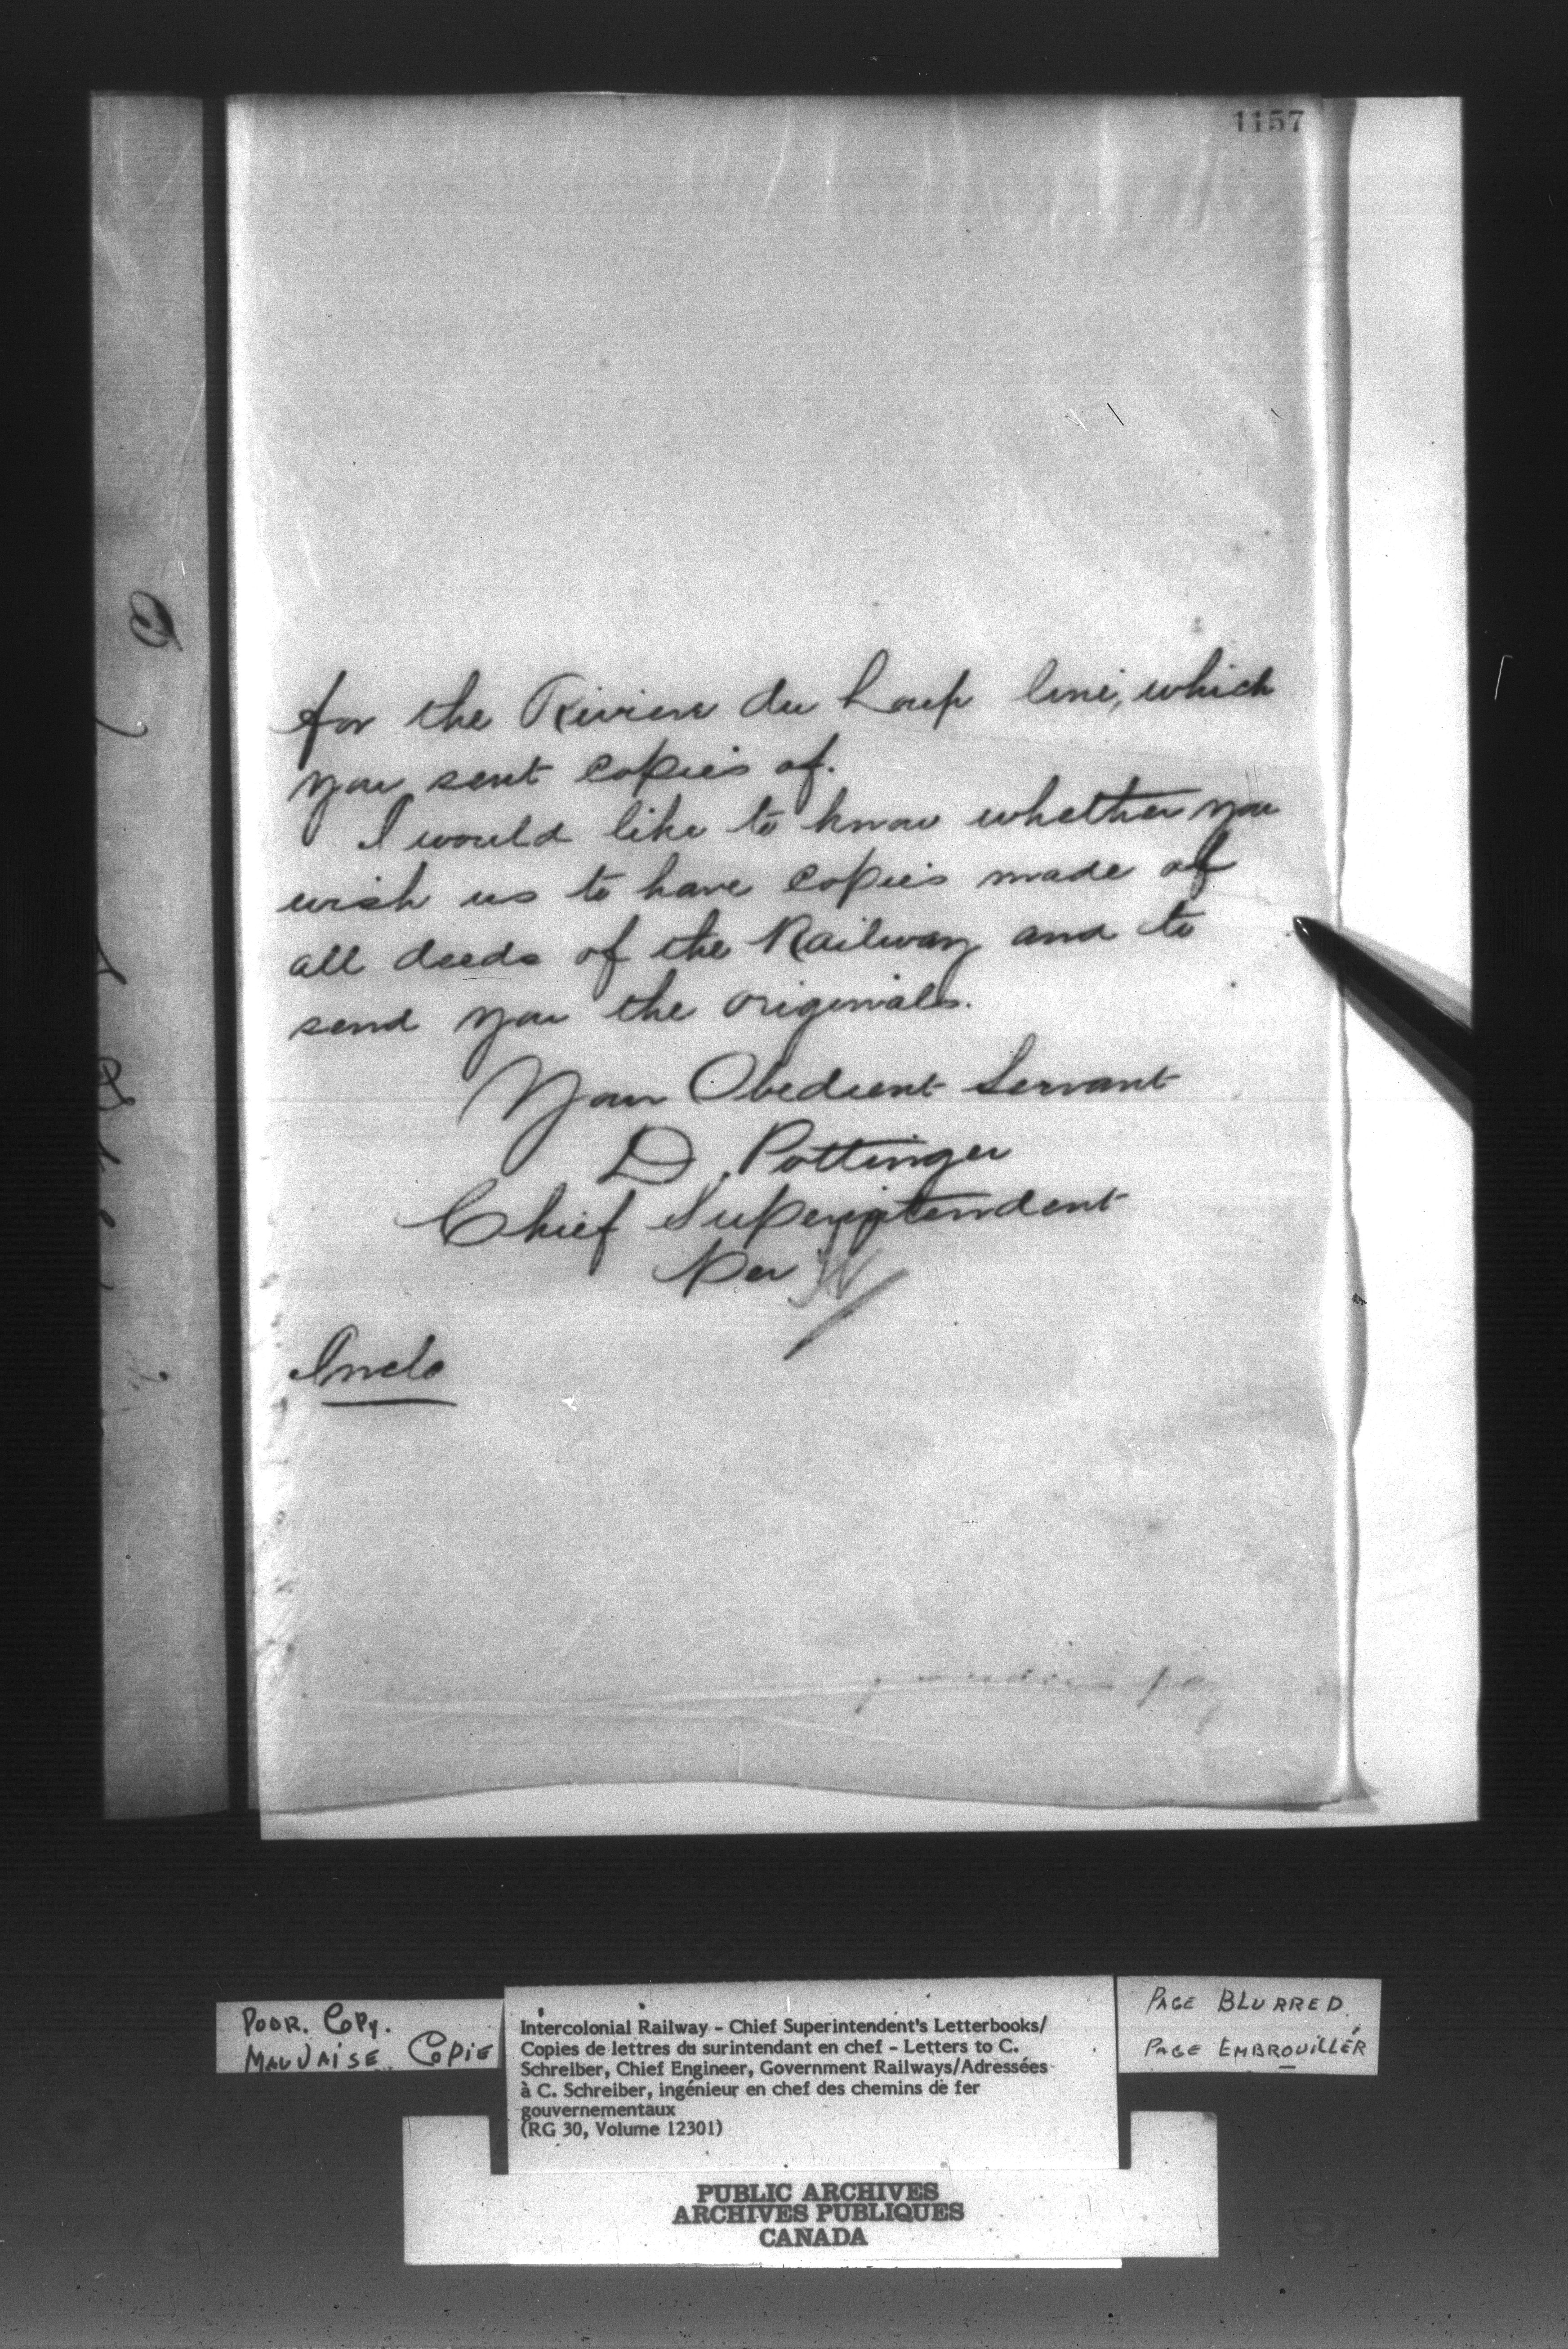 1157
for the Riviere du Loup line, which
you sent copies of.
I would like to know whether you
wish us to have copies made of
all deeds of the Railway and to
send you the originals.
Your Obedient Servant
D. Pottinger
Chief Superintendent
Per
Incls
POOR. COPY.
MAUVAISE COPIE
Intercolonial Railway - Chief Superintendent's Letterbooks/
Copies de lettres du surintendant en chef - Letters to C.
Schreiber, Chief Engineer, Government Railways/Adressées
à C. Schreiber, ingénieur en chef des chemins de fer
gouvernementaux
(RG 30, Volume 12301)
PAGE BLURRED.
PAGE EMBROUILLÉR
PUBLIC ARCHIVES
ARCHIVES PUBLIQUES
CANADA